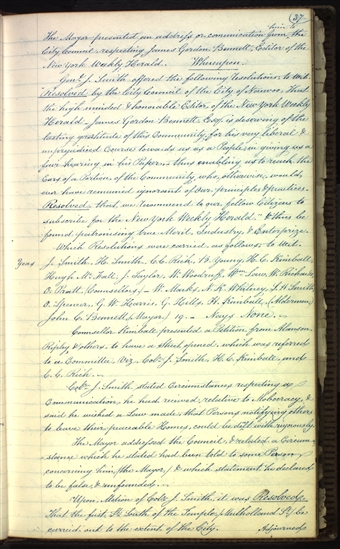 37
The Mayor presented an address or comunication from, the
City Council, respecting James Gordon Bennett, Editor of the
New York Weekly Herald. Whereupon
Gen. J. Smith offered the following Resolutions: to wit.
Resolved by the City Council of the City of Nauvoo, That
the high minded & honorable Editor of the New York Weekly
Herald James Gordon Bennett, Esq. is deserving of the
lasting gratitude of this Community, for his very liberal &
unprejudiced Course towards us as a People, in giving us a
fair hearing in his Paper, thus enabling us to reach the
Ears of a Portion of the Community, who, otherwise, would
ever have remained ignorant of our principles & practices.
Resolved that we recommend to our fellow Citizens to
subscribe for the New York Weekly Herald, & thus be
found patronising true Merit, Industry, & Enterprize.
Which Resolutions were carried as follows: to wit.
Yeas J. Smith, H. Smith, C. C. Rich, B. Young, H. C. Kimball,
Hugh McFall, J. Taylor, W. Woodruff, Wm Law, W. Richards,
O. Pratt, (Counsellors) W. Marks, N. K. Whitney, S. H. Smith,
O. Spencer, G. W. Harris, G. Hills, H. Kimball, (Aldermen)
John C. Bennett, Mayor, 19. Nays None.
Counsellor Kimball presented a Petition, from Alanson
Ripley & others, to have a Street opened, which was referred
to a Committee, Viz. J. Smith, H. C. Kimball, and
C. C. Rich.
J. Smith stated Circumstances respecting a
Communication, he had received, relative to Mobocracy, &
said he wished a Law made, that Persons notifying others
to leave their peaceable Homes, could be dealt with rigorously.
The Mayor addressed the Council, & related a Circum
stance which he stated had been told to some Person
concerning him, (the Mayor,) & which statement he declared
to be false & unfounded.
Upon Motion of J. Smith, it was Resolved
That the first St. South of the Temple, (Mulholland St.) be
carried out to the extent of the City. Adjourned